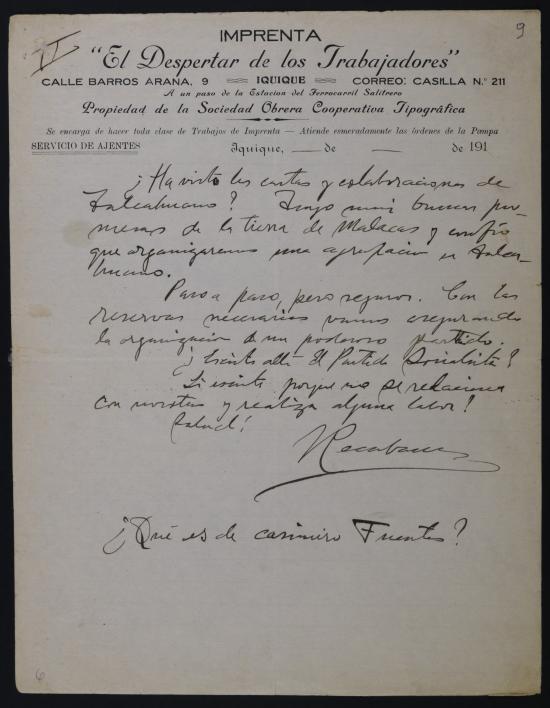 9
II
IMPRENTA
"El Despertar de los Trabajadores"
CALLE BARROS ARANA, 9 IQUIQUE CORREO: CASILLA N.º 211
A un paso de la Estacion del Ferrocarril Salitrero
Propiedad de la Sociedad Obrera Cooperativa Tipográfica
Se encarga de hacer toda clase de Trabajos de Imprenta — Atiende esmeradamente las órdenes de la Pampa
SERVICIO DE AJENTES
Iquique, de de 191
¿Ha visto las cartas y colaboraciones de
Talcahuano? Tengo muy buenas pro-
mesas de la tierra de Malacas y confío
que organizaremos una agrupacion en Talca-
huano.
Paso a paso, pero seguros. Con las
reservas necesarias vamos asegurando
la organizacion de un poderoso partido.
¿Existe allá el Partido Socialista?
Si existe porque no se relaciona
con nosotros y realiza alguna labor!
Salud!
Recabarren
¿Qué es de Casimiro Fuentes?
6